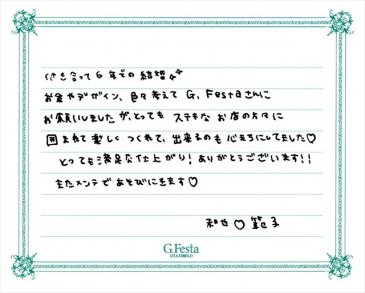 付き合って6年での結婚
お金やデザイン、色々考えて G.Festaさんに
お願いしましたが、とっても ステキな お店の方々に
囲まれて楽しく つくれて、出来るのも 心まちにしてました♡
とっても満足な仕上がり！ありがとうございます！！
またメンテであそびにきます♡
和也 ♡ 範子
G.Festa
DIAMOND